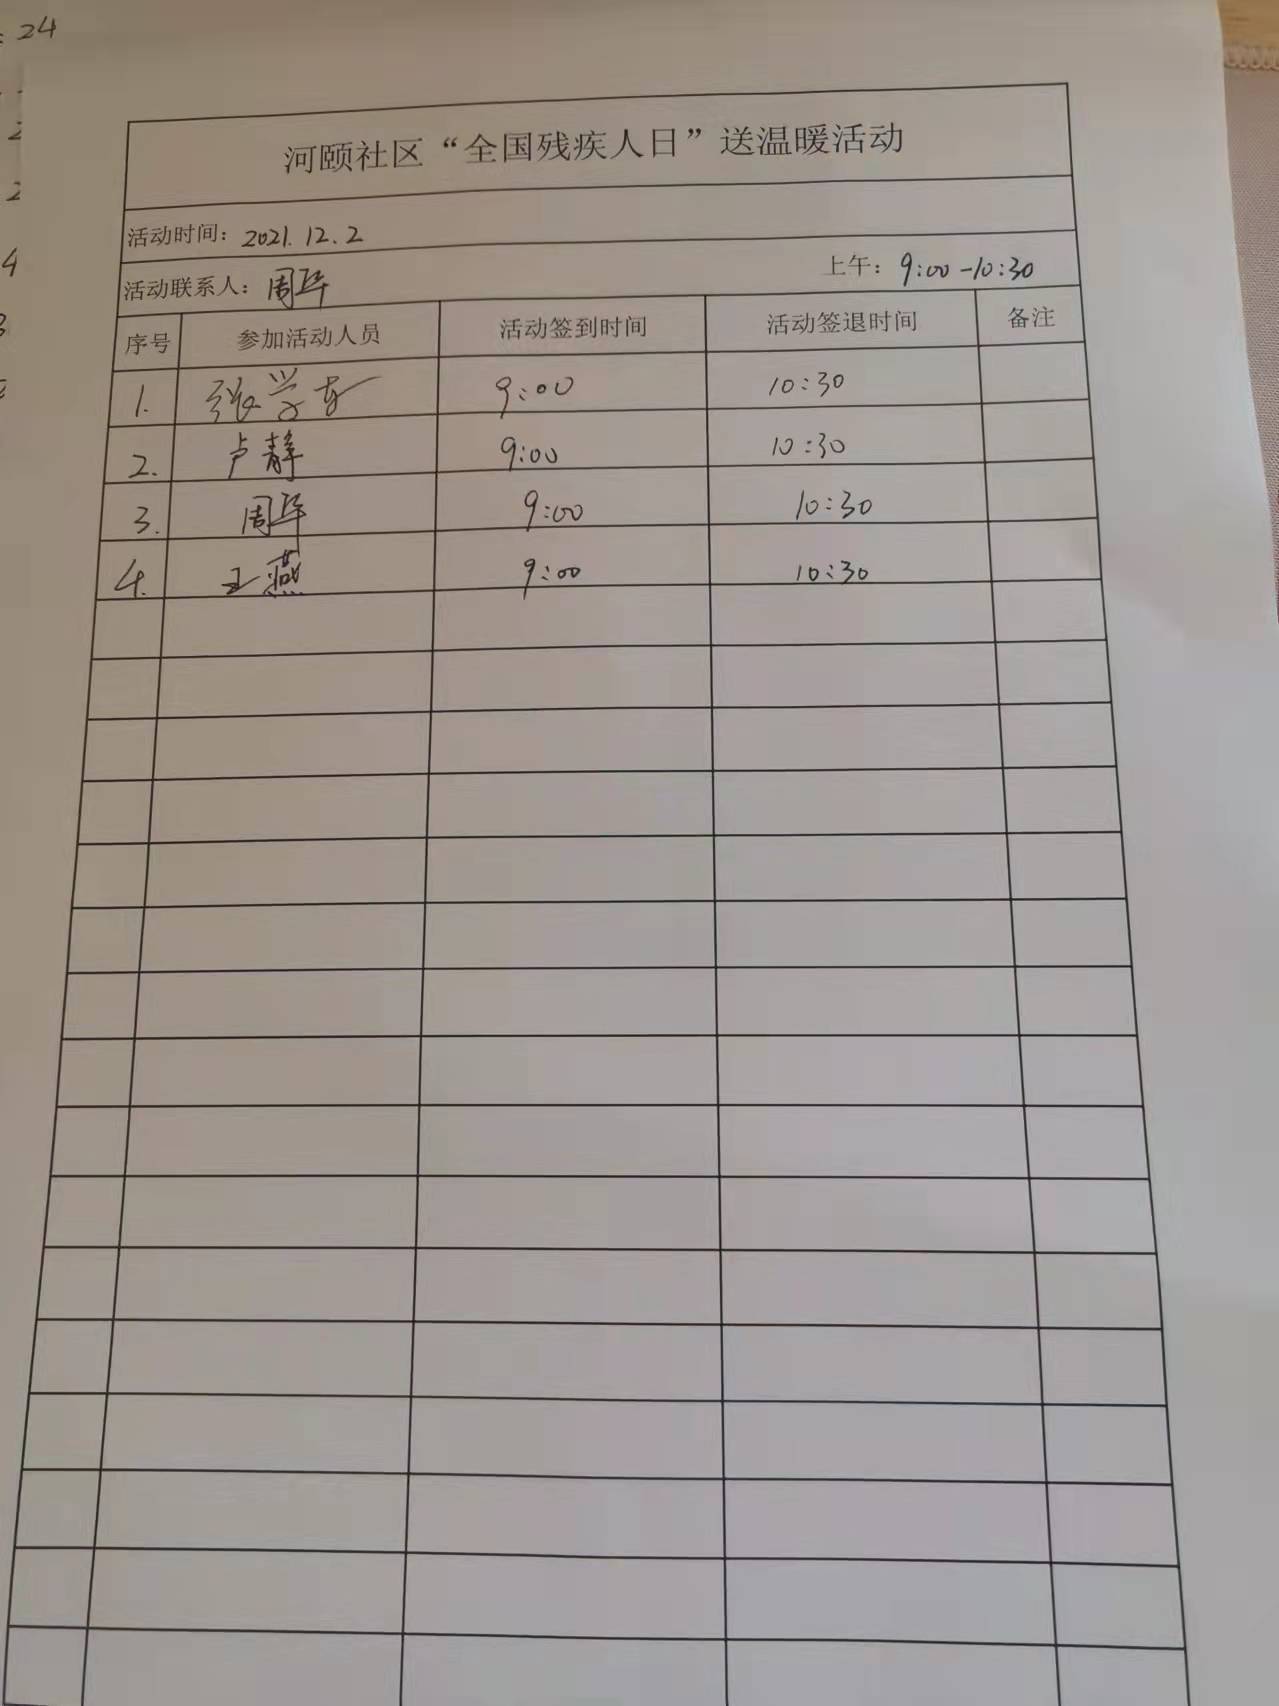 河颐社区“全国残疾人日”送温暖活动
活动时间：2021.12.2
活动联系人：周华 上午：9:00-10:30
序号 参加活动人员 活动签到时间 活动签退时间 备注
1. 张学东 9:00 10:30
2. 卢静 9:00 10:30
3. 周华 9:00 10:30
4. 王燕 9:00 10:30
24